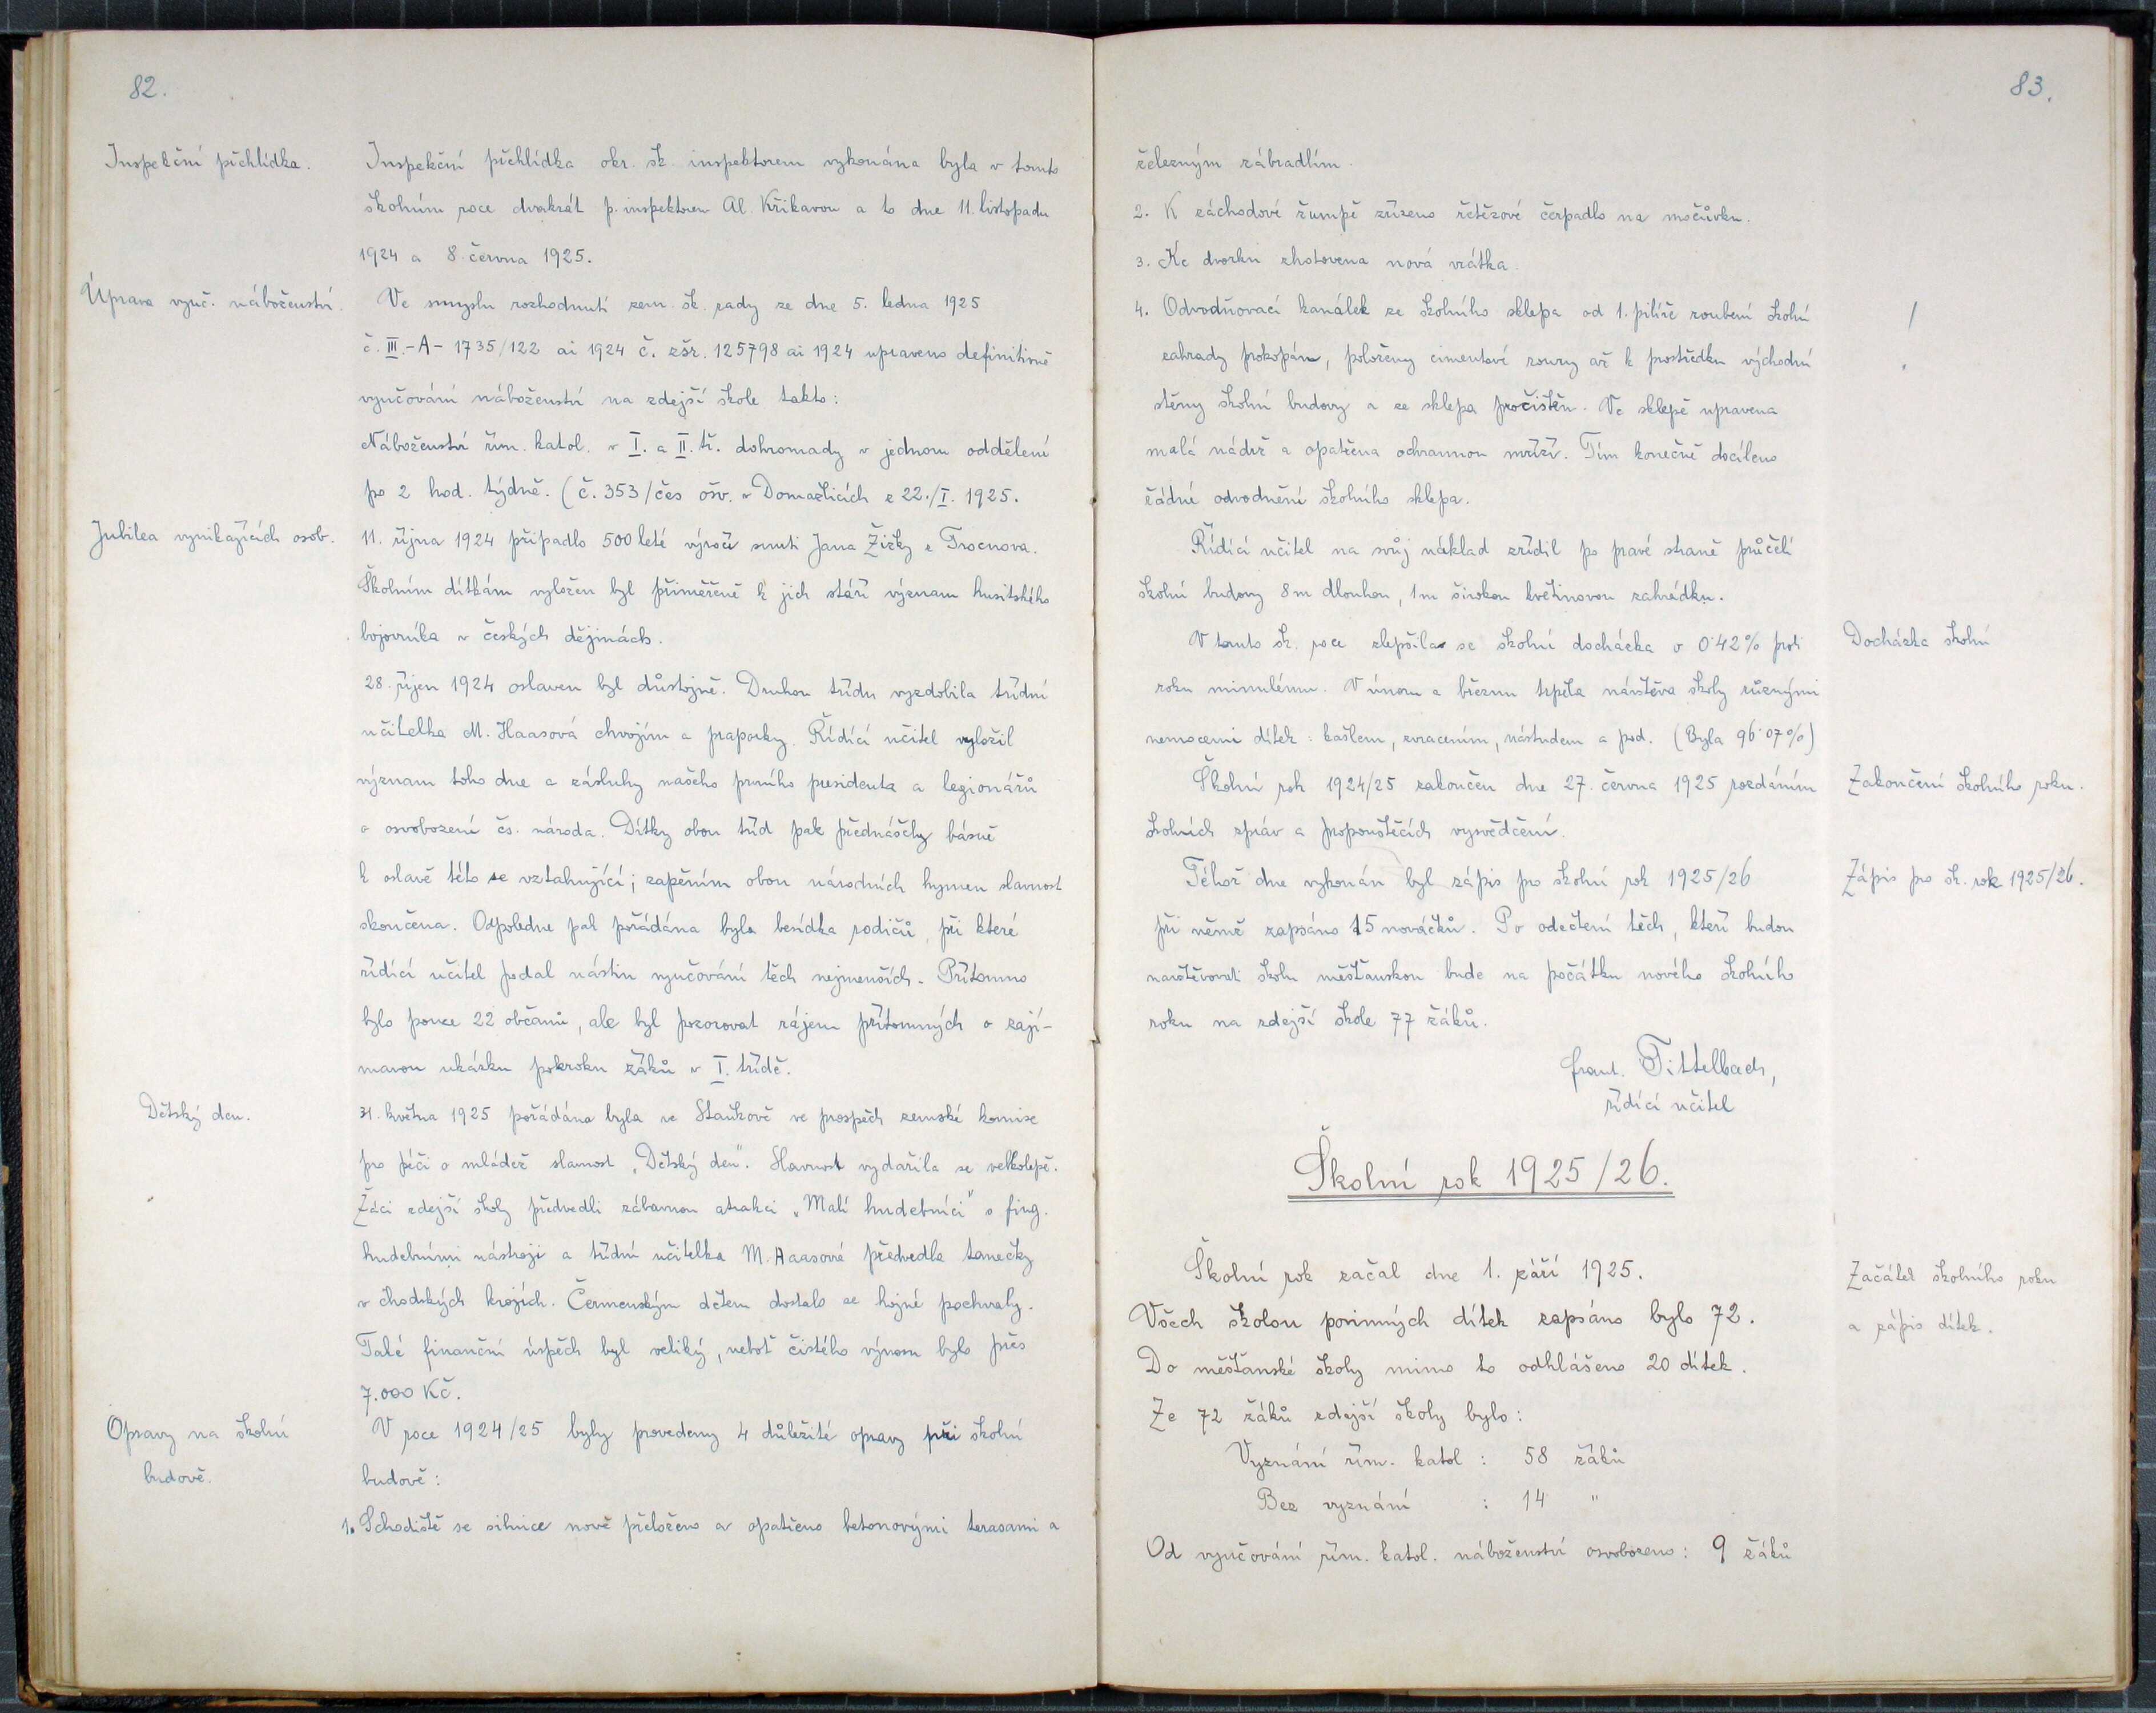 82.
Inspekční přehlídka.
Inspekční přehlídka okr. šk. inspektorem vykonána byla v tomto
školním roce dvakrát p. inspektorem Al. Křikavou a to dne 11. listopadu
1924 a 8. června 1925.
Úprava vyuč. náboženství.
Ve smyslu rozhodnutí zem. šk. rady ze dne 5. ledna 1925
č. III.-A-1735/122 ai 1924 č. zšr. 125798 ai 1924 upraveno definitivně
vyučování náboženství na zdejší škole takto:
Náboženství řím. katol. v I. a II. tř. dohromady v jednom oddělení
po 2 hod. týdně. (č. 353/čes ošv. v Domažlicích z 22./I. 1925.
Jubilea vynikajících osob.
11. října 1924 připadlo 500leté výročí smrti Jana Žižky z Trocnova.
Školním dítkám vyložen byl přiměřeně k jich stáří význam husitského
bojovníka v českých dějinách.
28. říjen 1924 oslaven byl důstojně. Druhou třídu vyzdobila třídní
učitelka M. Haasová chvojím a praporky. Řídící učitel vyložil
význam toho dne a zásluhy našeho prvního presidenta a legionářů
o osvobození čs. národa. Dítky obou tříd pak přednášely básně
k oslavě této se vztahující; zapěním obou národních hymen slavnost
skončena. Odpoledne pak pořádána byla besídka rodičů, při které
řídící učitel podal nástin vyučování těch nejmenších. Přítomno
bylo pouze 22 občanů, ale byl pozorovat zájem přítomných o zají-
mavou ukázku pokroku žáků v I. třídě.
Dětský den.
31. května 1925 pořádána byla ve Staňkově ve prospěch zemské komise
pro péči o mládež slavnost „Dětský den“. Slavnost vydařila se velkolepě.
Žáci zdejší školy předvedli zábavnou atrakci „Malí hudebníci“ s fing.
hudebními nástroji a třídní učitelka M. Haasová předvedla tanečky
v chodských krojích. Čermenským dětem dostalo se hojné pochvaly.
Také finanční úspěch byl veliký, neboť čistého výnosu bylo přes
7.000 Kč.
Opravy na školní
budově.
V roce 1924/25 byly provedeny 4 důležité opravy při školní
budově:
1. Schodiště se silnice nově přeloženo a opatřeno betonovými terasami a
83.
železným zábradlím.
2. K záchodové žumpě zřízeno řetězové čerpadlo na močůvku.
3. Ke dvorku zhotovena nová vrátka.
4. Odvodňovací kanálek ze školního sklepa od 1. pilíře roubení školní
zahrady prokopán, položeny cimentové roury až k prostředku východní
stěny školní budovy a ze sklepa pročištěn. Ve sklepě upravena
malá nádrž a opatřena ochrannou mříží. Tím konečně docíleno
řádné odvodnění školního sklepa.
!
Řídící učitel na svůj náklad zřídil po pravé straně průčelí
školní budovy 8m dlouhou, 1m širokou květinovou zahrádku.
V tomto šk. roce zlepšila se školní docházka o 0·42% proti
roku minulému. V únoru a březnu trpěla návštěva školy různými
nemocemi dítek: kašlem, zvracením, nástudem a pod. (Byla 96·07%)
Docházka školní
Školní rok 1924/25 zakončen dne 27. června 1925 rozdáním
školních zpráv a propouštěcích vysvědčení.
Zakončení školního roku.
Téhož dne vykonán byl zápis pro školní rok 1925/26
při němž zapsáno 15 nováčků. Po odečtení těch, kteří budou
navštěvovati školu měšťanskou bude na počátku nového školního
roku na zdejší škole 77 žáků.
Zápis pro šk. rok 1925/26.
Frant. Tittelbach,
řídící učitel
Školní rok 1925/26.
Školní rok začal dne 1. září 1925.
Všech školou povinných dítek zapsáno bylo 72.
Do měšťanské školy mimo to odhlášeno 20 dítek.
Začátek školního roku
a zápis dítek.
Ze 72 žáků zdejší školy bylo:
Vyznání řím. katol : 58 žáků
Bez vyznání : 14 "
Od vyučování řím. katol. náboženství osvobozeno: 9 žáků